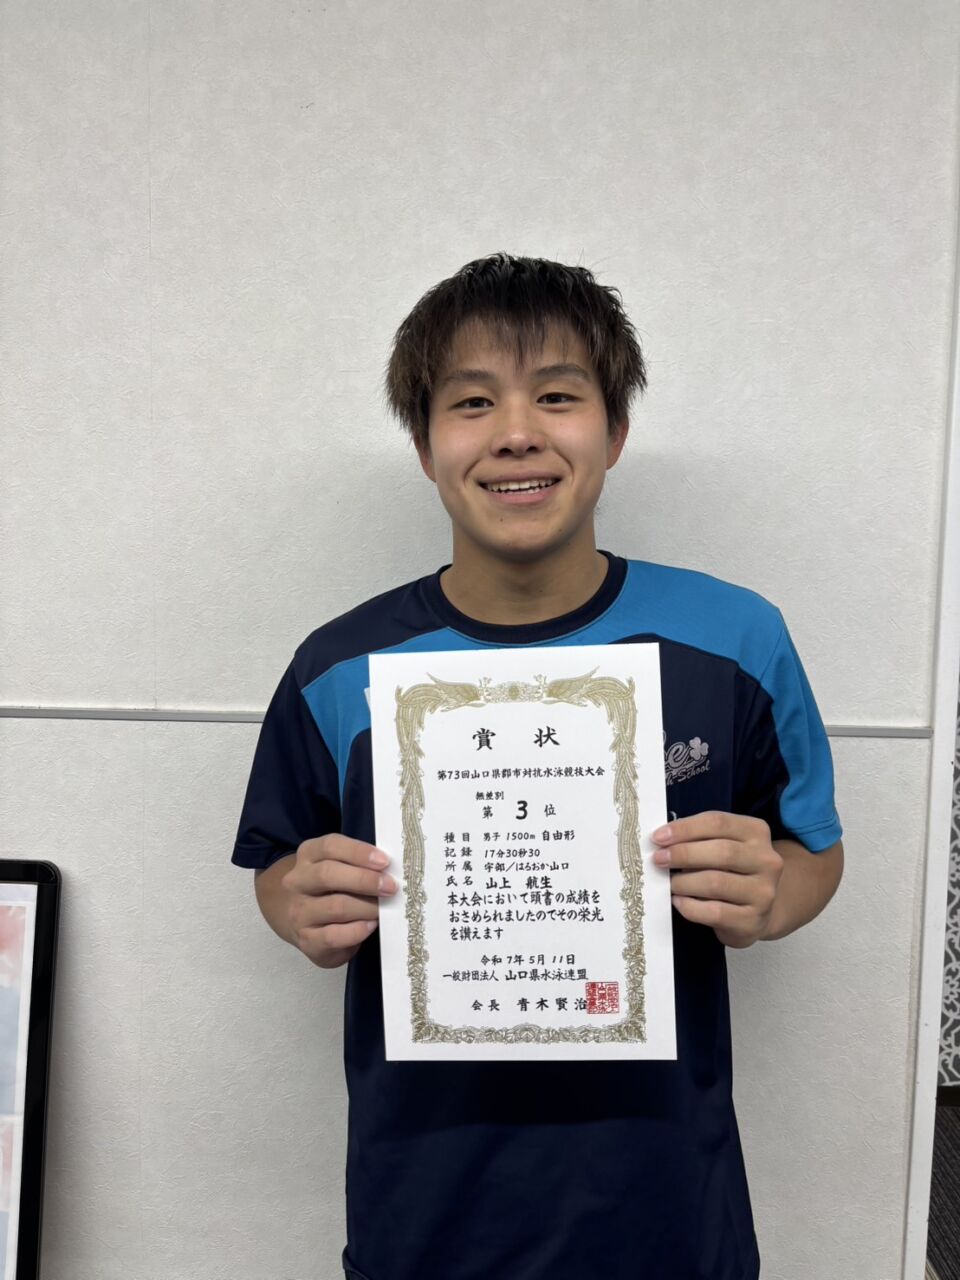 賞状
第73回山口県郡市対抗水泳競技大会
無差別
第 3 位
種目 男子 1500m 自由形
記録 17分30秒30
所属 宇部/はるおか山口
氏名 山上 航生
本大会において頭書の成績を
おさめられましたのでその栄光
を讃えます
令和7年5月11日
一般財団法人 山口県水泳連盟
会長 青木賢治
School